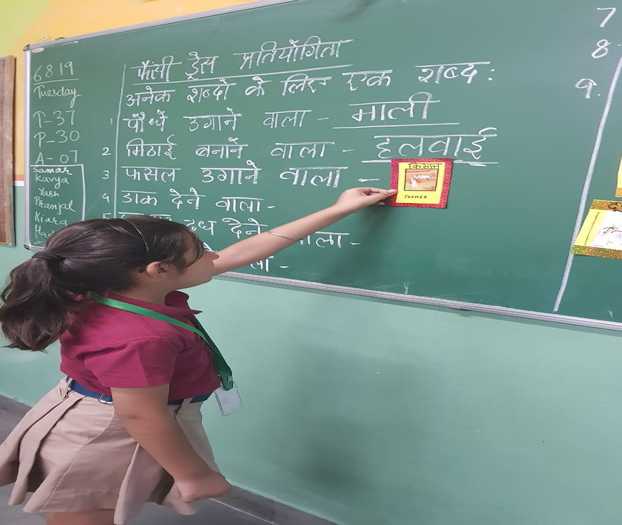 6 8 19
Tuesday
T-37
P-30
A-07
Samar
Kavya
Pranjal
Kiara
फैंसी ड्रेस प्रतियोगिता
अनेक शब्दों के लिए एक शब्द :
1 पौधें उगाने वाला - माली
2 मिठाई बनाने वाला - हलवाई
3 फासल उगाने वाला - किसान
FARMER
4 डाक देने वाला -
दूध देने वाला -
7
8
9.